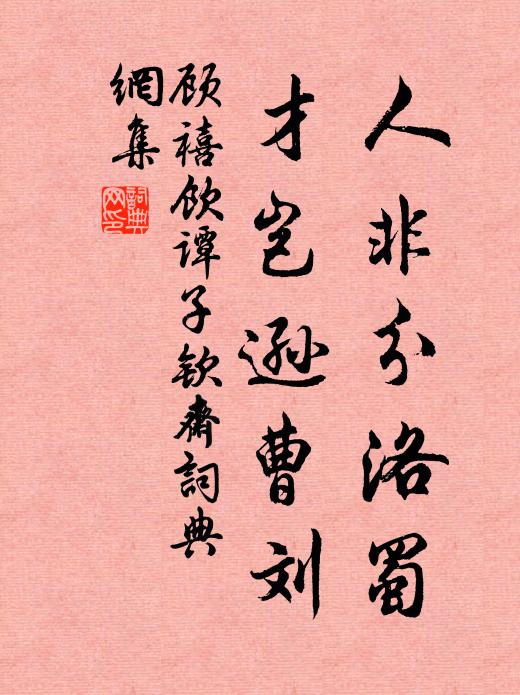 人非分洛蜀
才岂逊曹刘
顾禧饮谭子钦斋詞典
網集
詞典
网印